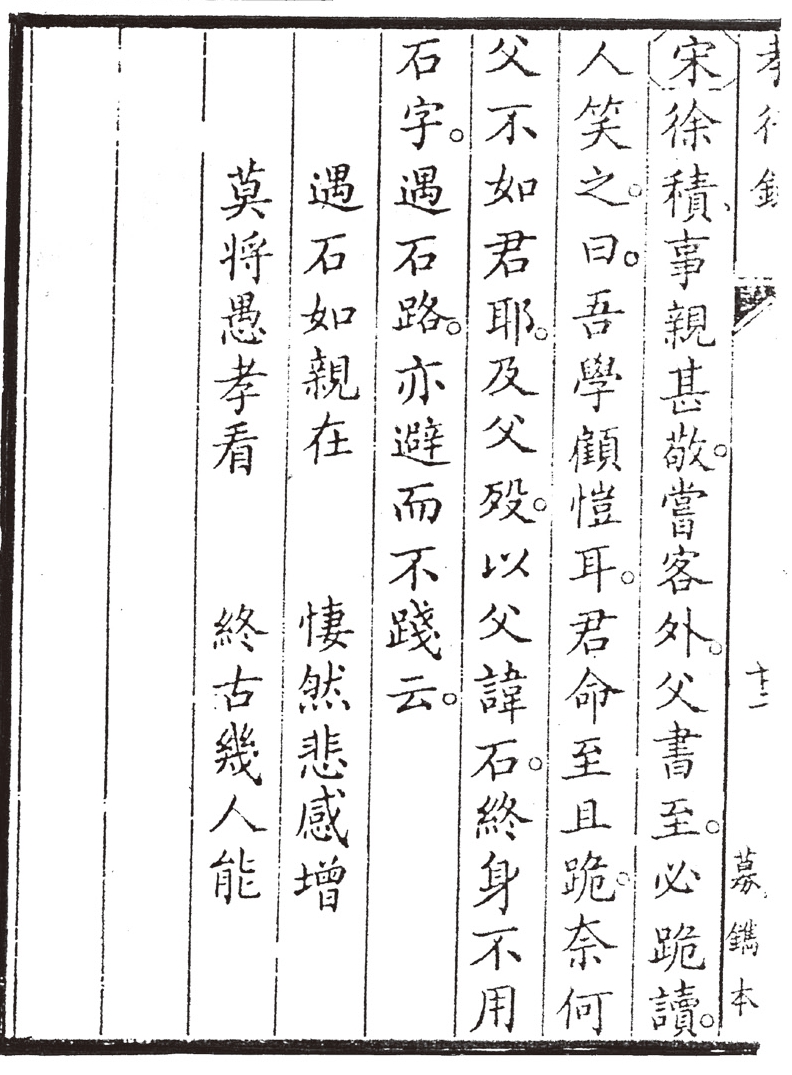 孝行錄
十二
募鐫本
宋徐積、事親甚敬。嘗客外。父書至。必跪讀。
人笑之。曰。吾學顧愷耳。君命至且跪。奈何
父不如君耶。及父歿。以父諱石。終身不用
石字。遇石路。亦避而不踐云。
遇石如親在　悽然悲感增
莫將愚孝看　終古幾人能